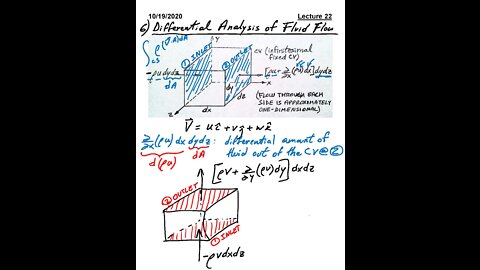 10/19/2020 Lecture 22
6) Differential Analysis of Fluid Flow
∫cs ρ(V̄·n̂)dA
① INLET
② OUTLET
CV (infinitesimal fixed CV)
-ρu dydz
dA
[ρu + ∂/∂x (ρu) dx] dydz
Y
X
Z
dx
dy
dz
(FLOW THROUGH EACH
SIDE IS APPROXIMATELY
ONE-DIMENSIONAL)
V̄ = uî + vĵ + wk̂
∂/∂x (ρu) dx dydz : differential amount of
d(ρu) dA fluid out of the CV@②
[ρv + ∂/∂y (ρv) dy] dxdz
② OUTLET
① INLET
-ρv dxdz